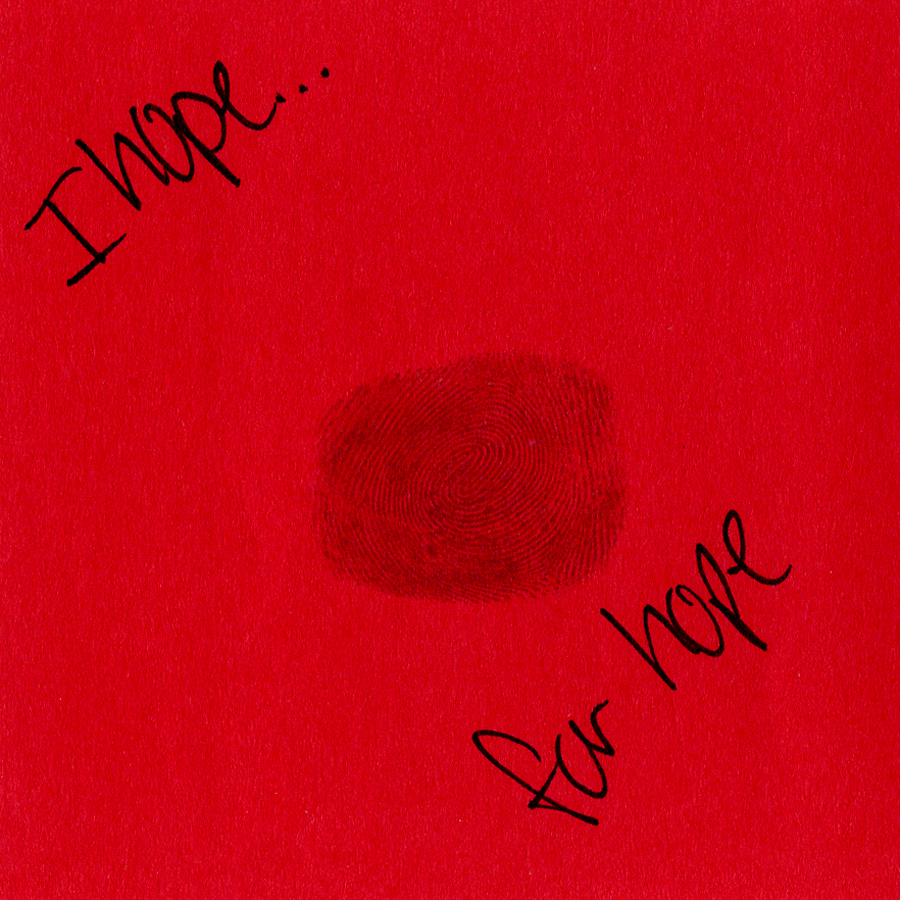 I hope...
for hope